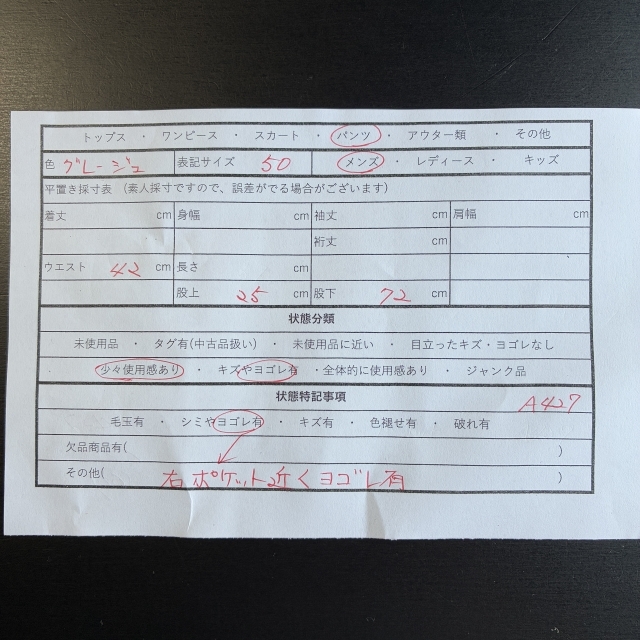 トップス ・ ワンピース ・ スカート ・ パンツ ・ アウター類 ・ その他
色 グレージュ 表記サイズ 50 メンズ ・ レディース ・ キッズ
平置き採寸表 (素人採寸ですので、誤差がでる場合がございます)
着丈 cm 身幅 cm 袖丈 cm 肩幅 cm
裄丈 cm
ウエスト 42 cm 長さ cm
股上 25 cm 股下 72 cm
状態分類
未使用品 ・ タグ有(中古品扱い) ・ 未使用に近い ・ 目立ったキズ・ヨゴレなし
少々使用感あり ・ キズやヨゴレ有 ・全体的に使用感あり ・ ジャンク品
状態特記事項
A427
毛玉有 ・ シミやヨゴレ有 ・ キズ有 ・ 色褪せ有 ・ 破れ有
欠品商品有( )
その他( 右ポケット近くヨゴレ有 )